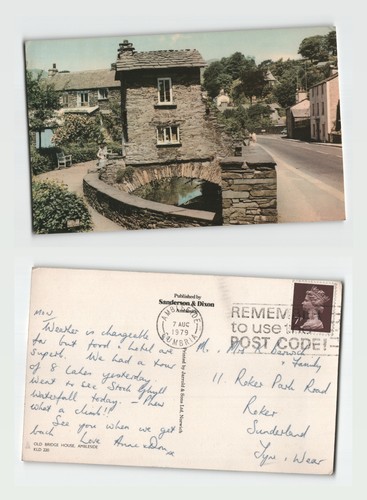 Mon.
Weather is changeable
far but food & hotel are
superb. We had a tour
of 8 Lakes yesterday.
Went to see Stock Ghyll
Waterfall today. - Phew
what a climb!!
See you when we get
back
Love Anne & Dom
OLD BRIDGE HOUSE, AMBLESIDE
KLD 230
Published by
Sanderson & Dixon
Ambleside
Printed by Jarrold & Sons Ltd, Norwich
AMBLESIDE
7 AUG
1979
CUMBRIA
REMEMBER
to use the
POST CODE!
Mr, Mrs
& Family
11, Roker Park Road
Roker
Sunderland
Tyne & Wear